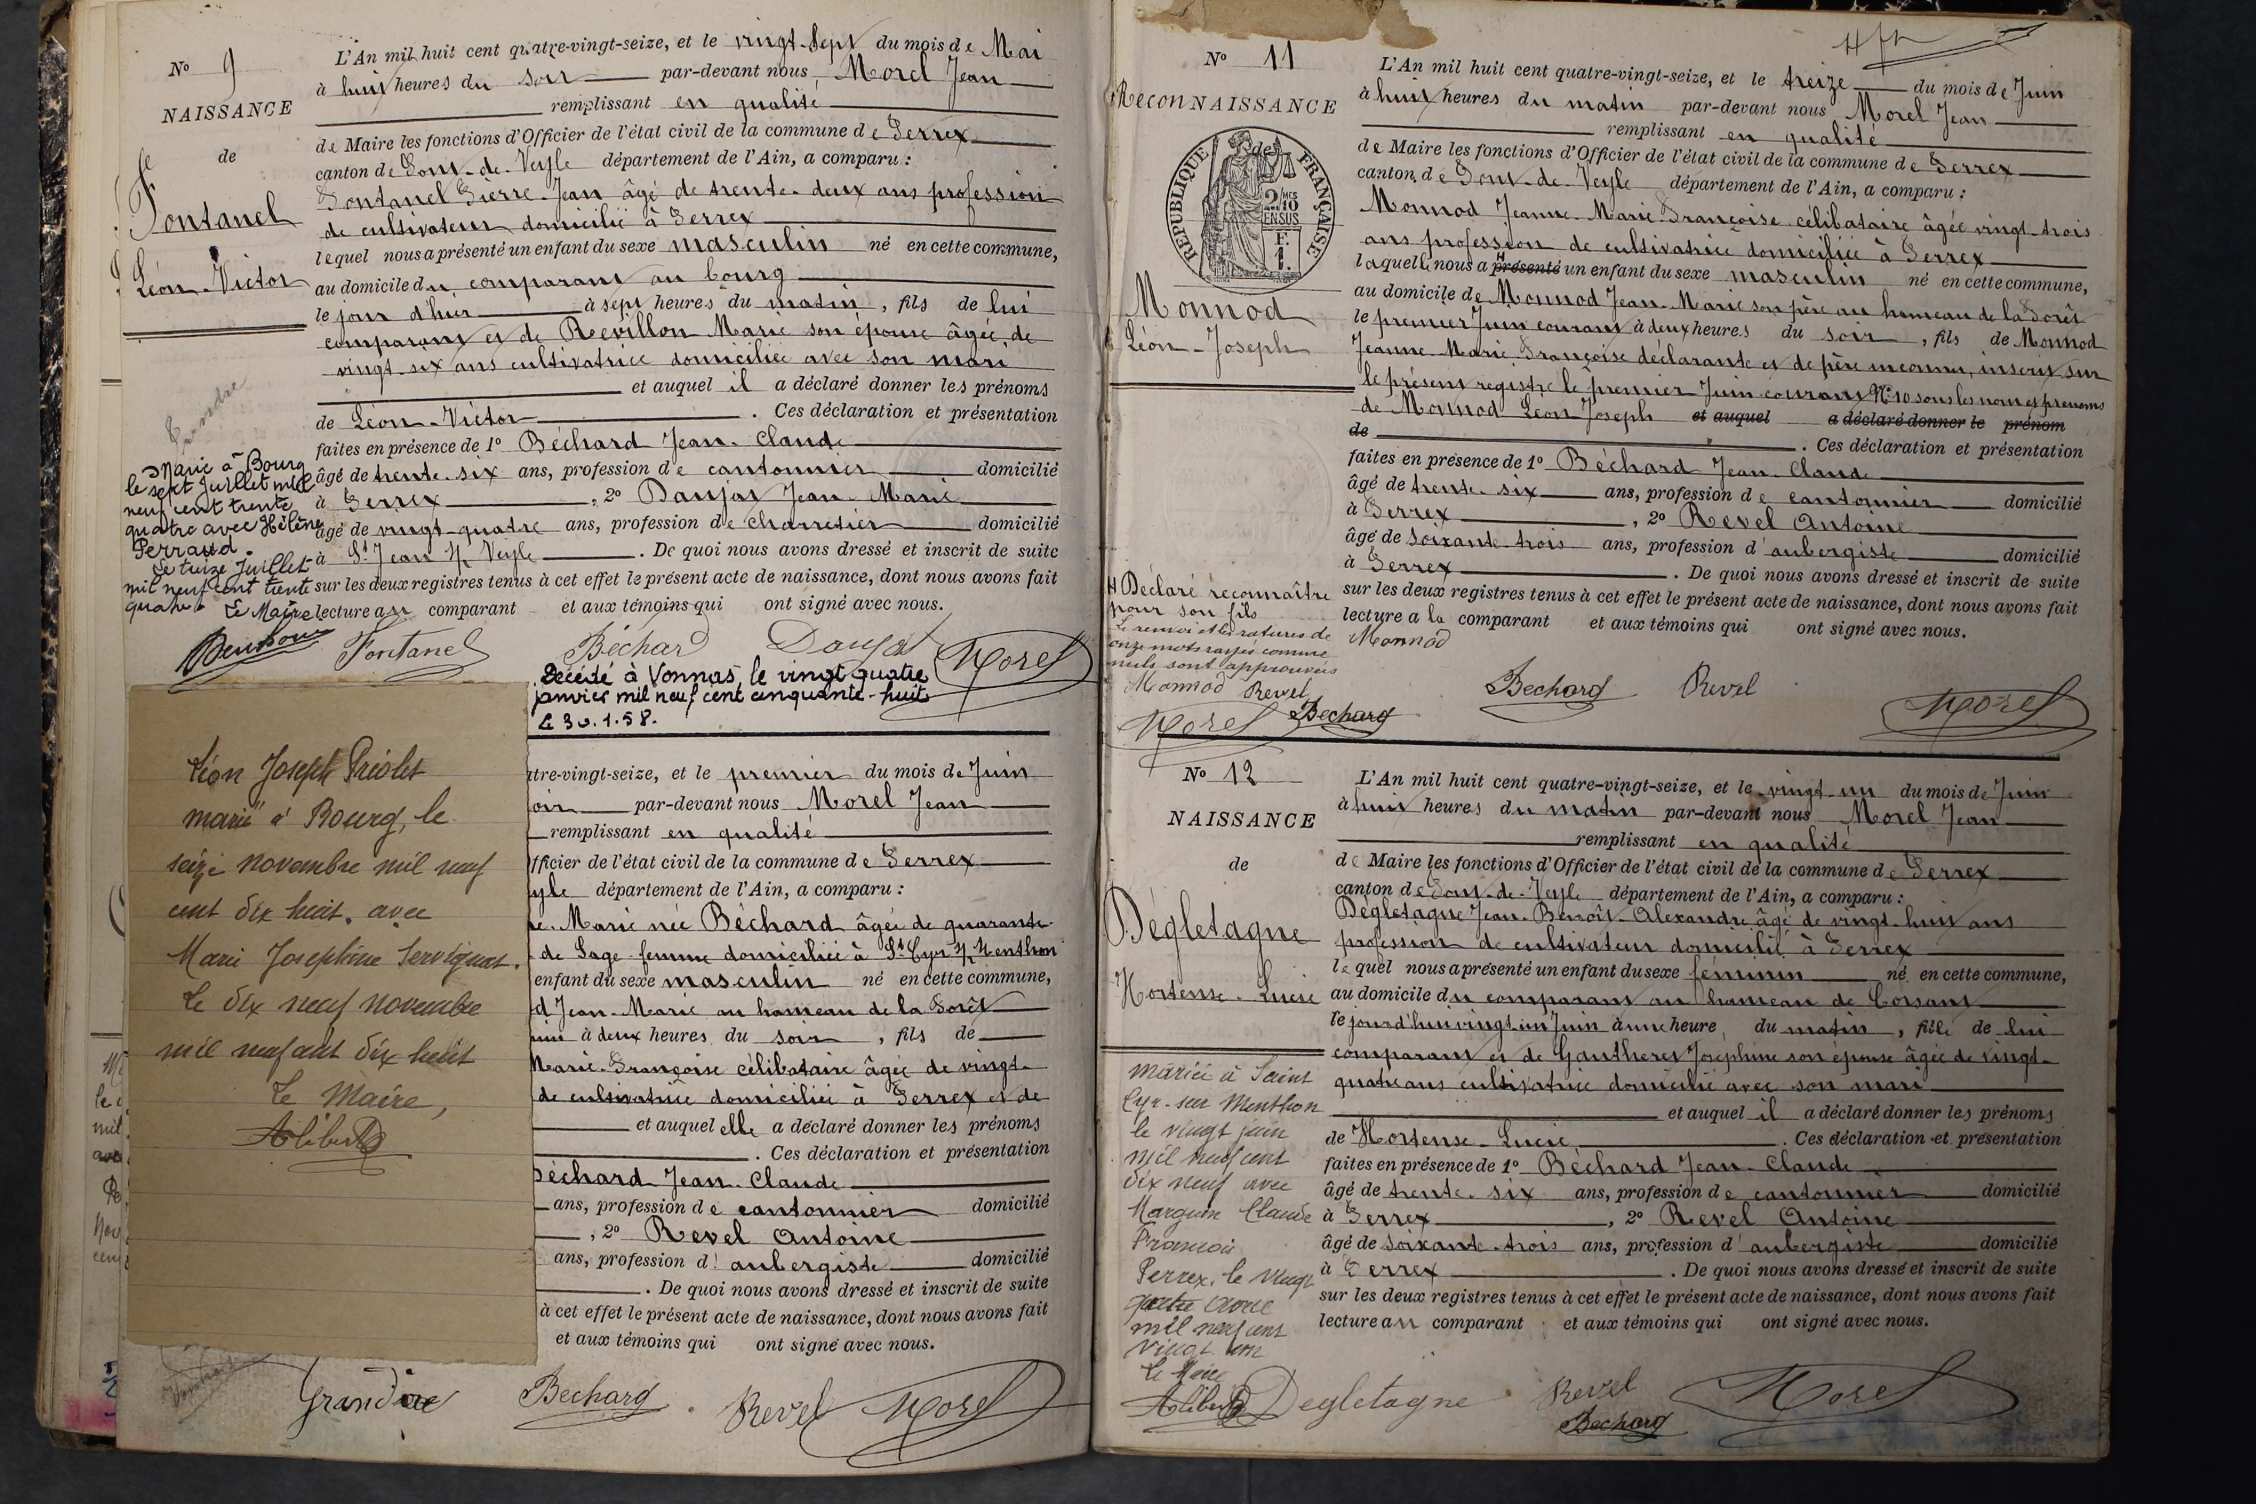 No 9
NAISSANCE
de
Fontanel
Léon-Victor
L'An mil huit cent quatre-vingt-seize, et le vingt-sept du mois de Mai
à huit heures du soir par-devant nous Morel Jean
remplissant en qualité
de Maire les fonctions d'Officier de l'état civil de la commune de Perrex
canton de Pont-de-Veyle département de l'Ain, a comparu :
Fontanel Pierre-Jean âgé de trente-deux ans profession
de cultivateur domicilié à Perrex
lequel nous a présenté un enfant du sexe masculin né en cette commune,
au domicile du comparant au bourg
le jour d'hier à sept heures du matin, fils de lui
comparant et de Revillon Marie son épouse âgée de
vingt-six ans cultivatrice domiciliée avec son mari
et auquel il a déclaré donner les prénoms
de Léon-Victor. Ces déclaration et présentation
faites en présence de 1o Béchard Jean-Claude
âgé de trente-six ans, profession de cantonnier domicilié
à Perrex, 2o Daujat Jean-Marie
âgé de vingt-quatre ans, profession de charretier domicilié
à St Jean s/ Veyle. De quoi nous avons dressé et inscrit de suite
sur les deux registres tenus à cet effet le présent acte de naissance, dont nous avons fait
lecture au comparant et aux témoins qui ont signé avec nous.
Marié à Bourg
le sept Juillet mil
neuf cent trente
quatre avec Hélène
Perraud.
Le treize Juillet
mil neuf cent trente
quatre. Le Maire
Fontanel Béchard Daujat Morel
Décédé à Vonnas, le vingt quatre
janvier mil neuf cent cinquante-huit
Le 30.1.58.
Léon Joseph Préolet
marié à Bourg, le
seize novembre mil neuf
cent dix huit, avec
Marie Joséphine Servignat.
Le dix neuf novembre
mil neuf cent dix huit
Le Maire,
Alibert
tre-vingt-seize, et le premier du mois de Juin
oir par-devant nous Morel Jean
remplissant en qualité
fficier de l'état civil de la commune de Perrex
yle département de l'Ain, a comparu :
e-Marie née Béchard âgée de quarante-
de Sage-femme domiciliée à St Cyr s/ Menthon
enfant du sexe masculin né en cette commune,
d Jean-Marie au hameau de la Forêt
uin à deux heures du soir, fils de
Marie-Françoise célibataire âgée de vingt-
de cultivatrice domiciliée à Perrex et de
et auquel elle a déclaré donner les prénoms
. Ces déclaration et présentation
Béchard Jean-Claude
ans, profession de cantonnier domicilié
, 2o Revel Antoine
ans, profession d'aubergiste domicilié
. De quoi nous avons dressé et inscrit de suite
à cet effet le présent acte de naissance, dont nous avons fait
et aux témoins qui ont signé avec nous.
Béchard Revel Morel
No 11
ReconNAISSANCE
de
RÉPUBLIQUE FRANÇAISE
Monnod
Léon-Joseph
L'An mil huit cent quatre-vingt-seize, et le treize du mois de Juin
à huit heures du matin par-devant nous Morel Jean
remplissant en qualité
de Maire les fonctions d'Officier de l'état civil de la commune de Perrex
canton de Pont-de-Veyle département de l'Ain, a comparu :
Monnod Jeanne-Marie-Françoise célibataire âgée vingt-trois
ans profession de cultivatrice domiciliée à Perrex
laquelle nous a présenté un enfant du sexe masculin né en cette commune,
au domicile de Monnod Jean-Marie son père au hameau de la Forêt
le premier Juin courant à deux heures du soir, fils de Monnod
Jeanne-Marie Françoise déclarante et de père inconnu, inscrit sur
le présent registre le premier Juin courant No 10 sous les nom et prénoms
de Monnod Léon Joseph et auquel a déclaré donner le prénom
de. Ces déclaration et présentation
faites en présence de 1o Béchard Jean-Claude
âgé de trente-six ans, profession de cantonnier domicilié
à Perrex, 2o Revel Antoine
âgé de soixante-trois ans, profession d'aubergiste domicilié
à Perrex. De quoi nous avons dressé et inscrit de suite
sur les deux registres tenus à cet effet le présent acte de naissance, dont nous avons fait
lecture a la comparant et aux témoins qui ont signé avec nous.
Déclaré reconnaître
pour son fils
Le renvoi et les ratures de
onze mots rayés comme
nuls sont approuvés
Monnod Revel
Morel Béchard
Monnod
Bechard Revel Morel
No 12
NAISSANCE
de
Dégletagne
Hortense-Lucie
L'An mil huit cent quatre-vingt-seize, et le vingt-un du mois de Juin
à huit heures du matin par-devant nous Morel Jean
remplissant en qualité
de Maire les fonctions d'Officier de l'état civil de la commune de Perrex
canton de Pont-de-Veyle département de l'Ain, a comparu :
Dégletagne Jean-Benoît-Alexandre âgé de vingt-huit ans
profession de cultivateur domicilié à Perrex
lequel nous a présenté un enfant du sexe féminin né en cette commune,
au domicile du comparant au hameau de Corsant
le jour d'hui vingt-un Juin à une heure du matin, fille de lui
comparant et de Gautheret Joséphine son épouse âgée de vingt-
quatre ans cultivatrice domicilié avec son mari
et auquel il a déclaré donner les prénoms
de Hortense-Lucie. Ces déclaration et présentation
faites en présence de 1o Béchard Jean-Claude
âgé de trente-six ans, profession de cantonnier domicilié
à Perrex, 2o Revel Antoine
âgé de soixante-trois ans, profession d'aubergiste domicilié
à Perrex. De quoi nous avons dressé et inscrit de suite
sur les deux registres tenus à cet effet le présent acte de naissance, dont nous avons fait
lecture au comparant et aux témoins qui ont signé avec nous.
Mariée à Saint
Cyr-sur Menthon
le vingt juin
mil neuf cent
dix neuf avec
Marguin Claude
François
Perrex, le vingt
quatre
mil neuf cent
vingt un
Le Maire
Alibert
Degletagne Revel Bechard Morel